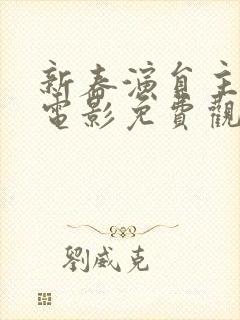 新春演員主
電影免費觀
劉威克